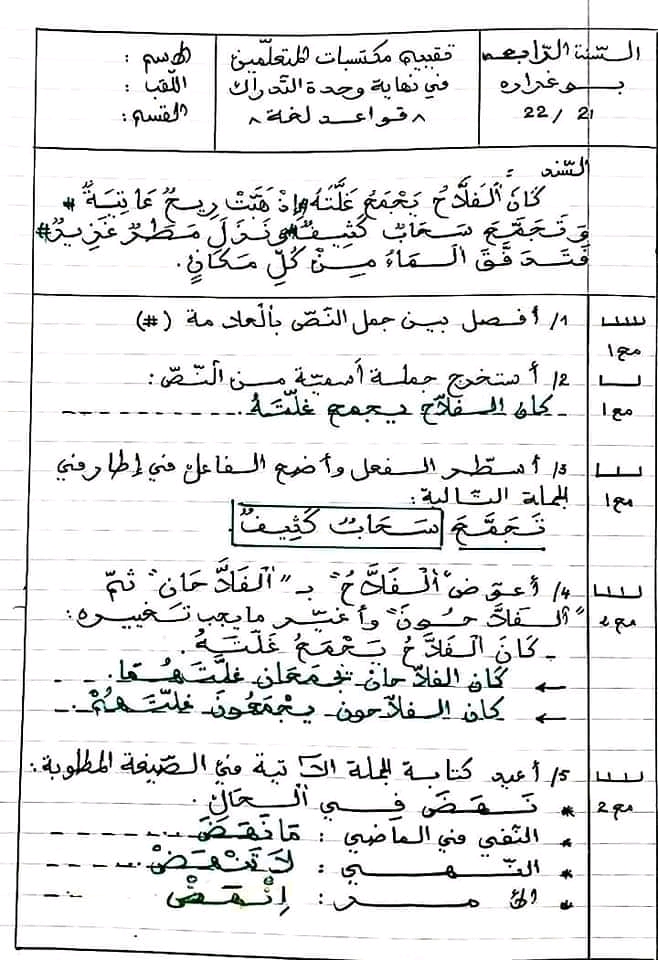 السّنة الرّابعة
بوغراره
21 / 22
تقييم مكتسبات المتعلّمين
في نهاية وحدة التّدارك
" قواعد لغة "
الاسم :
اللّقب :
القسم :
السّند :
كَانَ ٱلْفَلاَّحُ يَجْمَعُ غَلَّتَهُ # إِذْ هَبَّتْ رِيحٌ عَاتِيَةٌ #
وَتَجَمَّعَ سَحَابٌ كَثِيفٌ # وَنَزَلَ مَطَرٌ غَزِيرٌ #
فَتَدَفَّقَ الْمَاءُ مِنْ كُلِّ مَكَانٍ.
1/ أفصل بين جمل النّصّ بٱلعلامة (#)
مع1
2/ أستخرج جملة اسميّة من النّصّ :
مع1
كان الفلاّح يجمع غلّتَهُ.
3/ أسطّر الفعل وأضع الفاعل في إطار في
مع1
الجملة التّالية :
تَجَمَّعَ سَحَابٌ كَثِيفٌ.
4/ أعوّض "ٱلْفَلاَّحُ" بـ "ٱلْفَلاَّحَانِ" ثمّ
مع2
"ٱلْفَلاَّحُونَ" وأغيّر ما يجب تغييره :
- كَانَ ٱلْفَلاَّحُ يَجْمَعُ غَلَّتَهُ.
← كَانَ الفلاّحانِ يَجْمَعَانِ غلّتَهُمَا.
← كان الفلاّحون يجْمَعُونَ غلّتَهُمْ.
5/ أعيد كتابة الجملة الآتية في الصّيغة المطلوبة :
مع2
* نَهَضَ فِي ٱلْحَالِ.
* النّفي في الماضي : مَا نَهَضَ
* النّهي : لاَ تَنْهَضْ
* الأمر : إِنْهَضْ